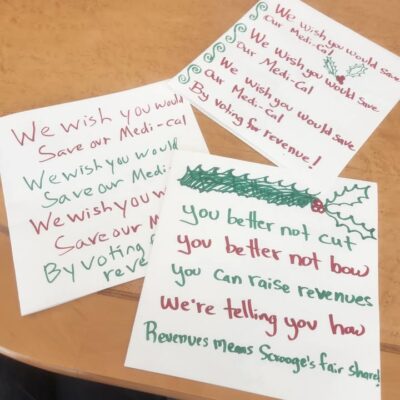 We wish you would
Save our Medi-Cal
We wish you would
Save our Medi-
We wish you w
Save our M
By voting
reve
We wish you would Save
Our Medi-Cal
We wish you would Save
Our Medi-Cal
We wish you would save
Our Medi-Cal
By voting for revenue!
you better not cut
you better not bow
you can raise revenues
We're telling you how
Revenues means Scrooge's fair share!